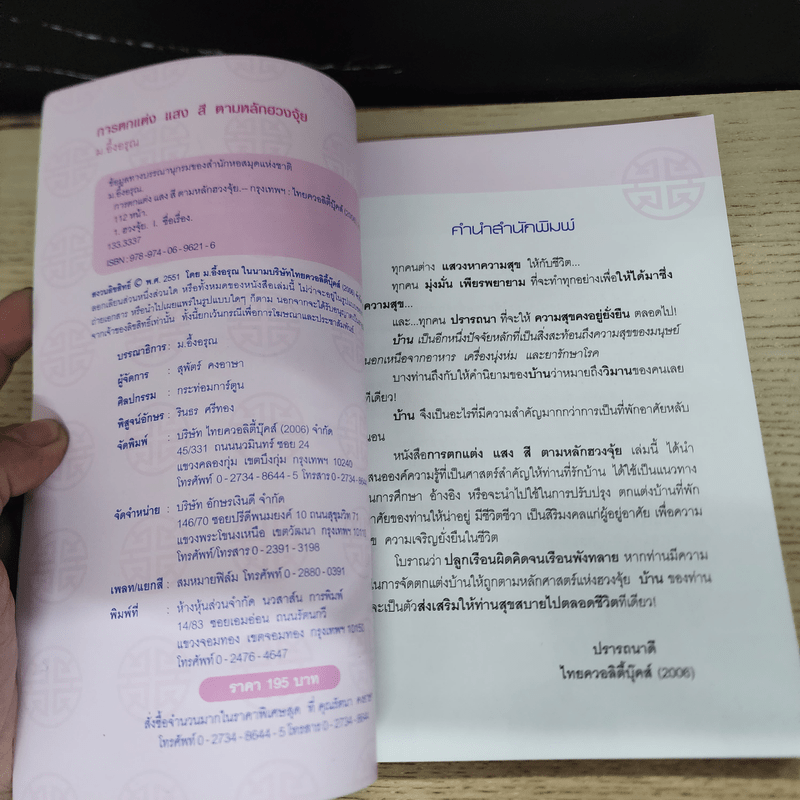 การตกแต่ง แสง สี ตามหลักฮวงจุ้ย
ม.อึ้งอรุณ
ข้อมูลทางบรรณานุกรมของสำนักหอสมุดแห่งชาติ
ม.อึ้งอรุณ.
การตกแต่ง แสง สี ตามหลักฮวงจุ้ย.-- กรุงเทพฯ : ไทยควอลิตี้บุ๊คส์ (2006)
112 หน้า.
1. ฮวงจุ้ย. I. ชื่อเรื่อง.
133.3337
ISBN : 978-974-06-9621-6
สงวนลิขสิทธิ์ © พ.ศ. 2551 โดย ม.อึ้งอรุณ ในนามบริษัทไทยควอลิตี้บุ๊คส์ (2006)
ลอกเลียนส่วนหนึ่งส่วนใด หรือทั้งหมดของหนังสือเล่มนี้ ไม่ว่าจะอยู่ในรูปแบบ
ถ่ายเอกสาร หรือนำไปเผยแพร่ในรูปแบบใดๆ ก็ตาม นอกจากจะได้รับอนุญาต
จากเจ้าของลิขสิทธิ์เท่านั้น ทั้งนี้ยกเว้นกรณีเพื่อการโฆษณาและประชาสัมพันธ์
บรรณาธิการ : ม.อึ้งอรุณ
ผู้จัดการ : สุพัตร์ คงอาษา
ศิลปกรรม : กระท่อมการ์ตูน
พิสูจน์อักษร : รินธร ศรีทอง
จัดพิมพ์ : บริษัท ไทยควอลิตี้บุ๊คส์ (2006) จำกัด
45/331 ถนนนวมินทร์ ซอย 24
แขวงคลองกุ่ม เขตบึงกุ่ม กรุงเทพฯ 10240
โทรศัพท์ 0-2734-8644-5 โทรสาร
จัดจำหน่าย : บริษัท อักษรเงินดี จำกัด
146/70 ซอยปรีดีพนมยงค์ 10 ถนนสุขุมวิท 71
แขวงพระโขนงเหนือ เขตวัฒนา กรุงเทพฯ 10110
โทรศัพท์/โทรสาร 0-2391-3198
เพลท/แยกสี : สมหมายฟิล์ม โทรศัพท์ 0-2880-0391
พิมพ์ที่ : ห้างหุ้นส่วนจำกัด นวสาส์น การพิมพ์
14/83 ซอยเอมอ่อน ถนนรัตนกวี
แขวงจอมทอง เขตจอมทอง กรุงเทพฯ 10150
โทรศัพท์ 0-2476-4647
ราคา 195 บาท
สั่งซื้อจำนวนมากในราคาพิเศษสุด ที่ คุณรัตนา
โทรศัพท์ 0-2734-8644-5 โทรสาร 0-2734
คำนำสำนักพิมพ์
ทุกคนต่าง แสวงหาความสุข ให้กับชีวิต...
ทุกคน มุ่งมั่น เพียรพยายาม ที่จะทำทุกอย่างเพื่อให้ได้มาซึ่ง
ความสุข...
และ...ทุกคน ปรารถนา ที่จะให้ ความสุขคงอยู่ยั่งยืน ตลอดไป!
บ้าน เป็นอีกหนึ่งปัจจัยหลักที่เป็นสิ่งสะท้อนถึงความสุขของมนุษย์
นอกเหนือจากอาหาร เครื่องนุ่งห่ม และยารักษาโรค
บางท่านถึงกับให้คำนิยามของบ้านว่าหมายถึงวิมานของคนเลย
ทีเดียว!
บ้าน จึงเป็นอะไรที่มีความสำคัญมากกว่าการเป็นที่พักอาศัยหลับ
นอน
หนังสือการตกแต่ง แสง สี ตามหลักฮวงจุ้ย เล่มนี้ ได้นำ
เสนอองค์ความรู้ที่เป็นศาสตร์สำคัญให้ท่านที่รักบ้าน ได้ใช้เป็นแนวทาง
ในการศึกษา อ้างอิง หรือจะนำไปใช้ในการปรับปรุง ตกแต่งบ้านที่พัก
อาศัยของท่านให้น่าอยู่ มีชีวิตชีวา เป็นสิริมงคลแก่ผู้อยู่อาศัย เพื่อความ
สุข ความเจริญยั่งยืนในชีวิต
โบราณว่า ปลูกเรือนผิดคิดจนเรือนพังทลาย หากท่านมีความ
ในการจัดตกแต่งบ้านให้ถูกตามหลักศาสตร์แห่งฮวงจุ้ย บ้าน ของท่าน
จะเป็นตัวส่งเสริมให้ท่านสุขสบายไปตลอดชีวิตทีเดียว!
ปรารถนาดี
ไทยควอลิตี้บุ๊คส์ (2006)